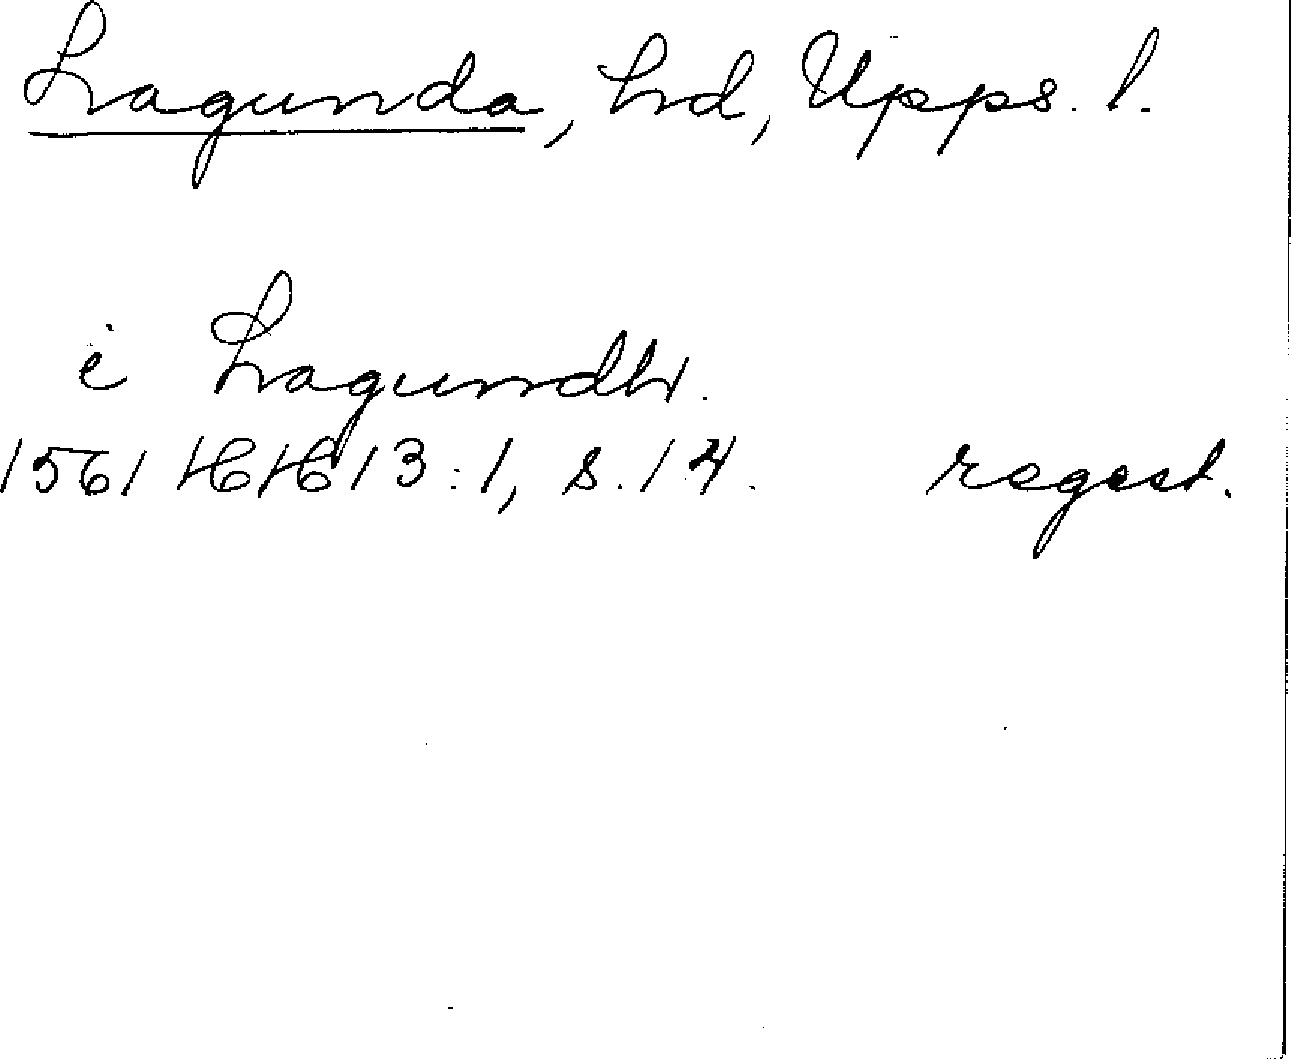 Lagunda, hd, Upps. l.
i Lagundh.
1561 HH 13:1, s. 14. regest.